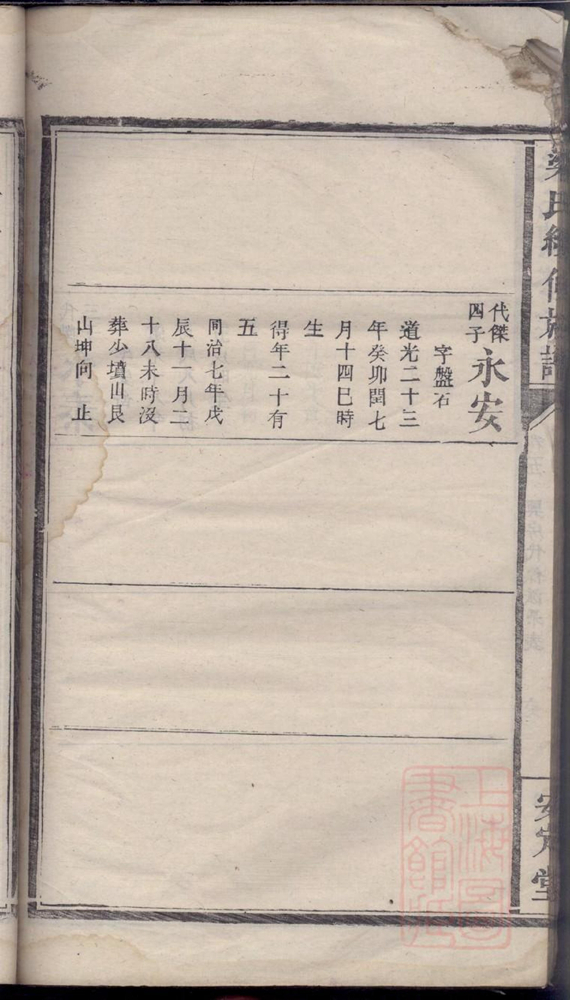 代傑
四子
永安
字盤石
道光二十三
年癸卯閏七
月十四巳時
生
得年二十有
五
同治七年戊
辰十一月二
十八未時沒
葬少墳山艮
山坤向 止
安定堂
上海圖
書館藏